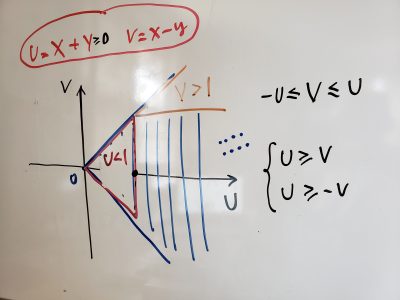 U = X + Y ≥ 0   V = X - Y
V
V > 1
-U ≤ V ≤ U
U < 1
{ U ≥ V
U ≥ -V
0
U